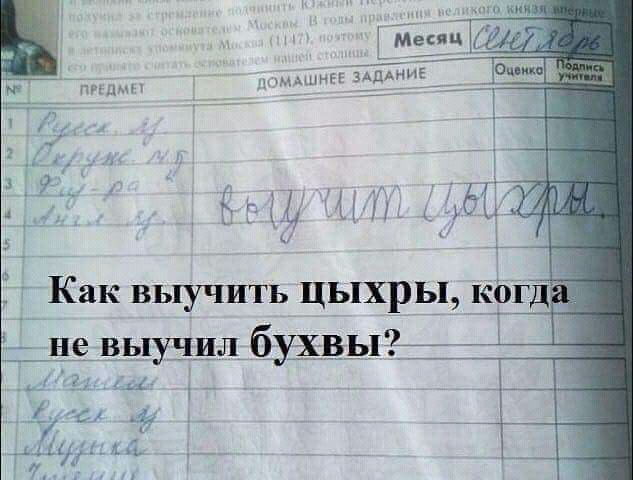 получил за стремление подчинить Южный
его называют основателем Москвы. В годы правления великого князя впервые
в летописях упомянута Москва (1147), поэтому
его принято считать основателем нашей столицы.
Месяц Сентябрь
№ ПРЕДМЕТ ДОМАШНЕЕ ЗАДАНИЕ Оценка Подпись учителя
1 Русск. яз.
2 Окруж. м
3 Физ-ра
4 Англ яз. выучит цыхры.
5
6
Как выучить цыхры, когда
не выучил бухвы?
Матем
Русск яз
Музыка
Чтение